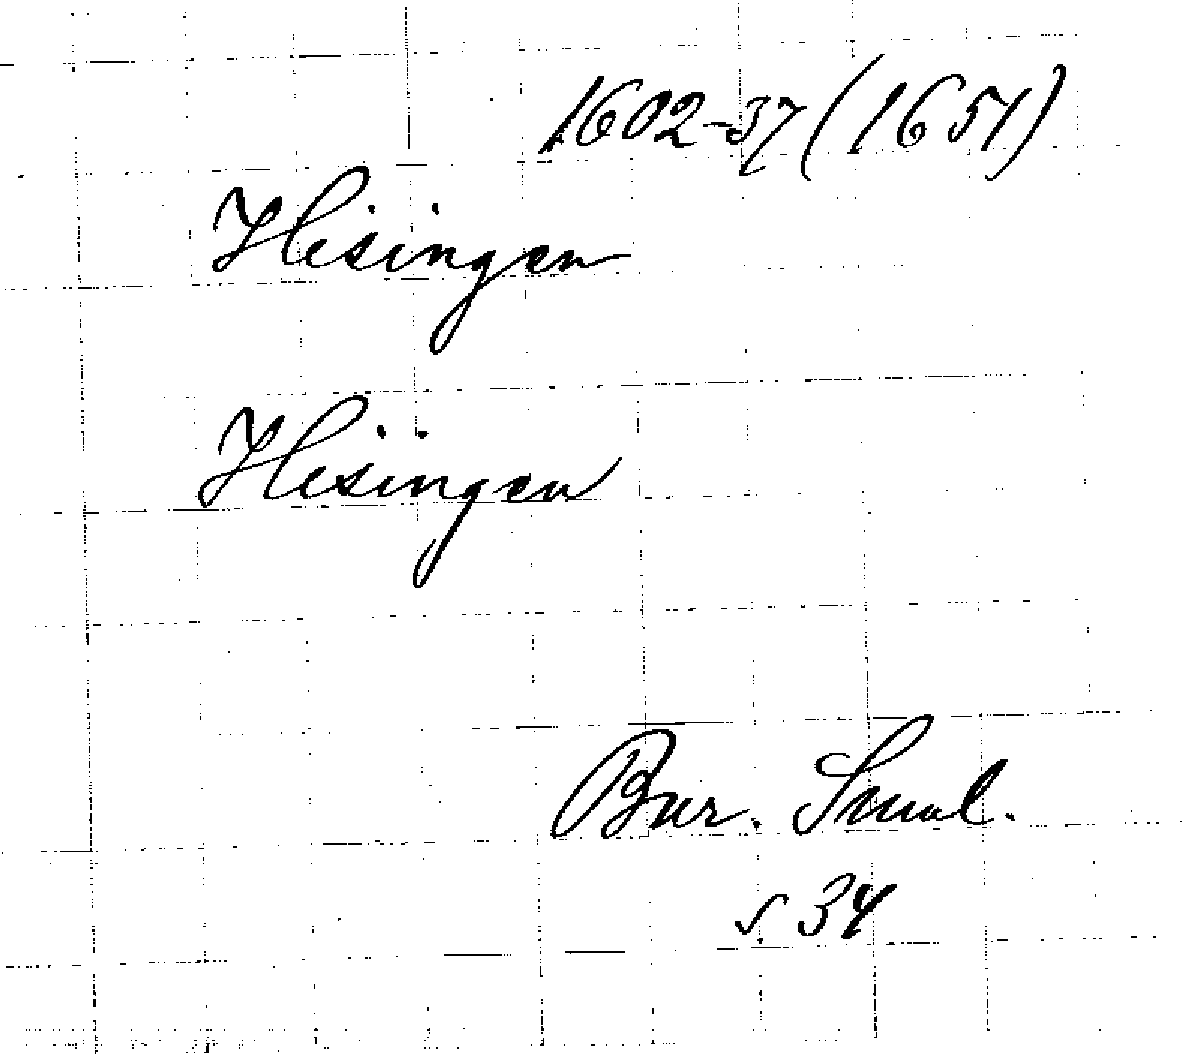 1602-37 (1651)
Hisingen
Hisingen
Bur. Suml.
s. 34